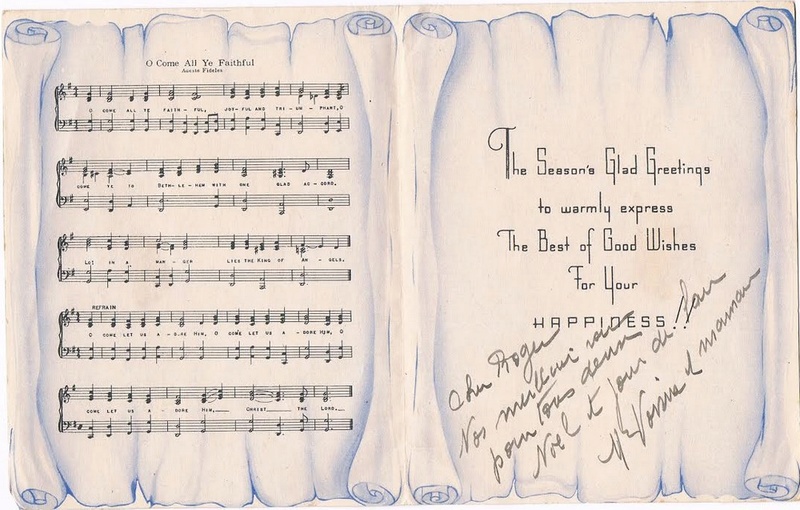 O Come All Ye Faithful
Adeste Fideles
O COME ALL YE FAITH-FUL, JOY-FUL AND TRI-UM-PHANT, O
COME YE TO BETH-LE-HEM WITH ONE GLAD AC-CORD,
LO! IN A MAN-GER LIES THE KING OF AN-GELS,
REFRAIN
O COME LET US A-DORE HIM, O COME LET US A-DORE HIM, O
COME LET US A-DORE HIM, CHRIST THE LORD.
The Season's Glad Greetings
to warmly express
The Best of Good Wishes
For Your
HAPPINESS!!
Cher Roger
Nos meilleur
pour tous deux
Noël et jour de l'an
et maman